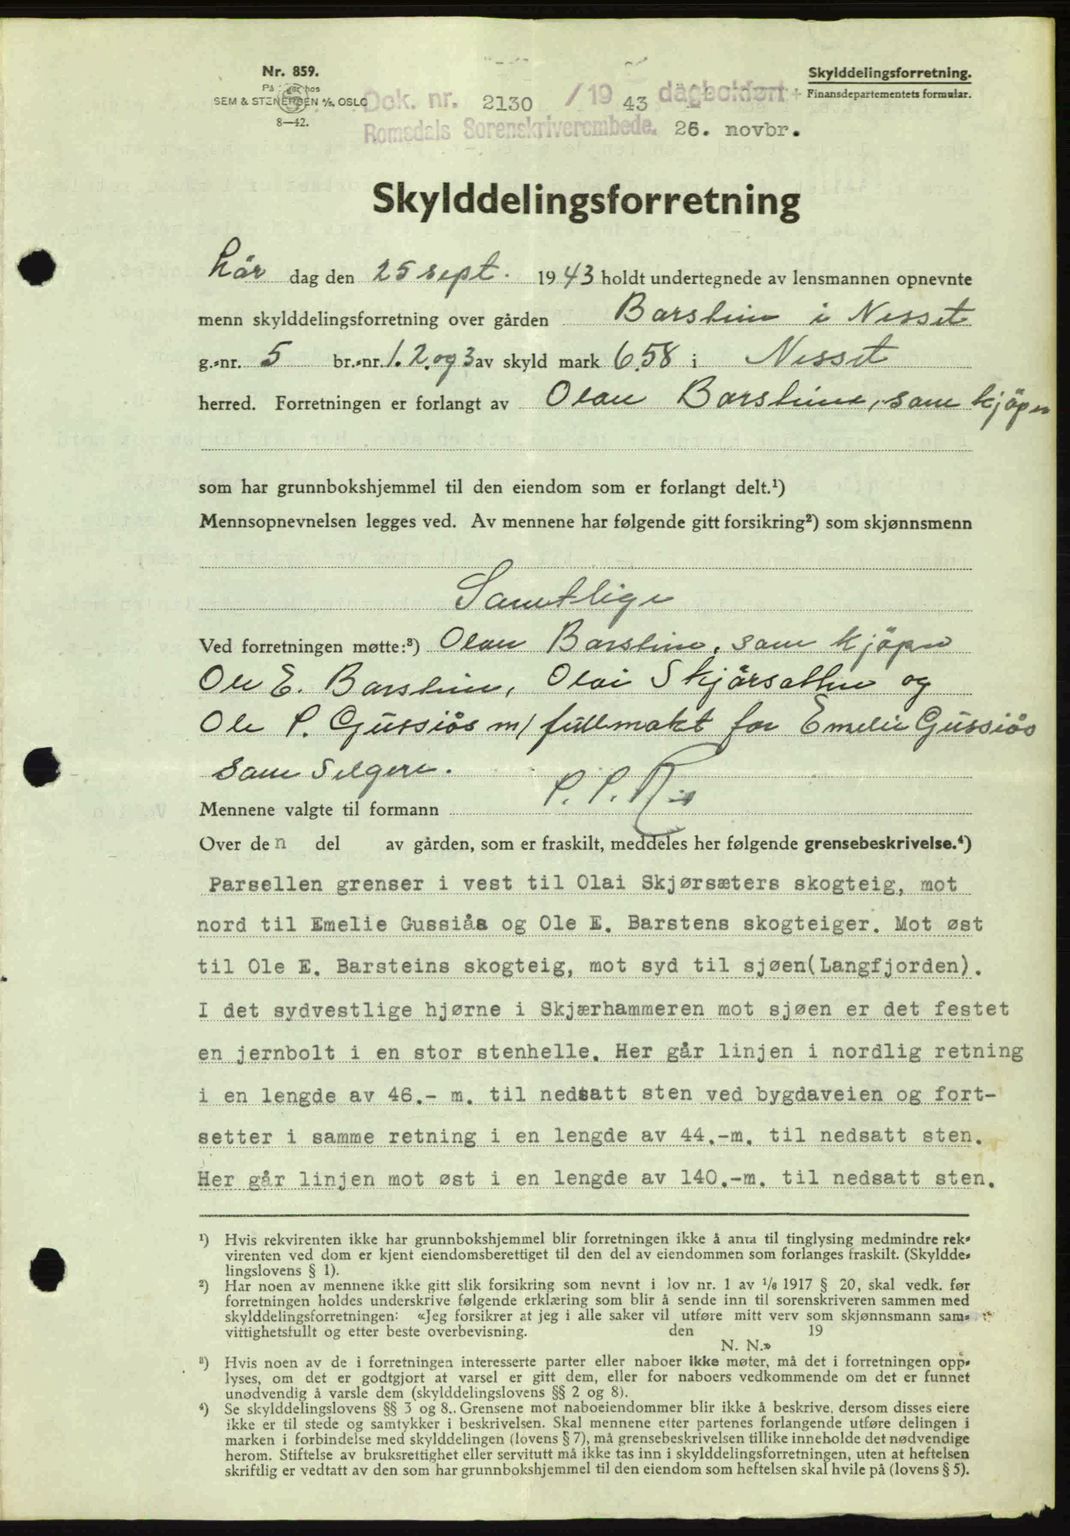 Nr. 859.
På lager hos
SEM & STENERSEN A/S, OSLO
8—42.
Skylddelingsforretning.
Finansdepartementets formular.
Dok. nr. 2130 /19 43 dagbokført
Romsdals Sorenskriverembede. 26. novbr.
Skylddelingsforretning
Lör dag den 25 sept. 1943 holdt undertegnede av lensmannen opnevnte
menn skylddelingsforretning over gården Barstein i Nesset
g.-nr. 5 br.-nr. 1. 2. og 3 av skyld mark 6,58 i Nesset
herred. Forretningen er forlangt av Olau Barstein, som kjöper
som har grunnbokshjemmel til den eiendom som er forlangt delt.¹)
Mennsopnevnelsen legges ved. Av mennene har følgende gitt forsikring²) som skjønnsmenn
Samtlige
Ved forretningen møtte:³) Olau Barstein, som kjöper
Ole E. Barstein, Olai Skjörsæther og
Ole P. Gussiås m/ fullmakt for Emelie Gussiås
som selgere.
Mennene valgte til formann P. P. Ris
Over den del av gården, som er fraskilt, meddeles her følgende grensebeskrivelse.⁴)
Parsellen grenser i vest til Olai Skjørsæters skogteig, mot
nord til Emelie Gussiås og Ole E. Barstens skogteiger. Mot øst
til Ole E. Barsteins skogteig, mot syd til sjøen(Langfjorden).
I det sydvestlige hjørne i Skjærhammeren mot sjøen er det festet
en jernbolt i en stor stenhelle. Her går linjen i nordlig retning
i en lengde av 46.- m. til nedsatt sten ved bygdaveien og fort-
setter i samme retning i en lengde av 44.-m. til nedsatt sten.
Her går linjen mot øst i en lengde av 140.-m. til nedsatt sten.
¹) Hvis rekvirenten ikke har grunnbokshjemmel blir forretningen ikke å anta til tinglysing medmindre rek-
virenten ved dom er kjent eiendomsberettiget til den del av eiendommen som forlanges fraskilt. (Skyldde-
lingslovens § 1).
²) Har noen av mennene ikke gitt slik forsikring som nevnt i lov nr. 1 av 1/6 1917 § 20, skal vedk. før
forretningen holdes underskrive følgende erklæring som blir å sende inn til sorenskriveren sammen med
skylddelingsforretningen: «Jeg forsikrer at jeg i alle saker vil utføre mitt verv som skjønnsmann sam-
vittighetsfullt og etter beste overbevisning. den 19
N. N.»
³) Hvis noen av de i forretningen interesserte parter eller naboer ikke møter, må det i forretningen opp-
lyses, om det er godtgjort at varsel er gitt dem, eller for naboers vedkommende om det er funnet
unødvendig å varsle dem (skylddelingslovens §§ 2 og 8).
⁴) Se skylddelingslovens §§ 3 og 8. Grensene mot naboeiendommer blir ikke å beskrive, dersom disses eiere
ikke er til stede og samtykker i beskrivelsen. Skal mennene etter partenes forlangende utføre delingen i
marken i forbindelse med skylddelingen (lovens § 7), må grensebeskrivelsen tillike inneholde det nødvendige
herom. Stiftelse av bruksrettighet eller servitutt må ikke tas inn i skylddelingsforretningen, uten at heftelsen
skriftlig er vedtatt av den som har grunnbokshjemmel til den eiendom som heftelsen skal hvile på (lovens § 5).